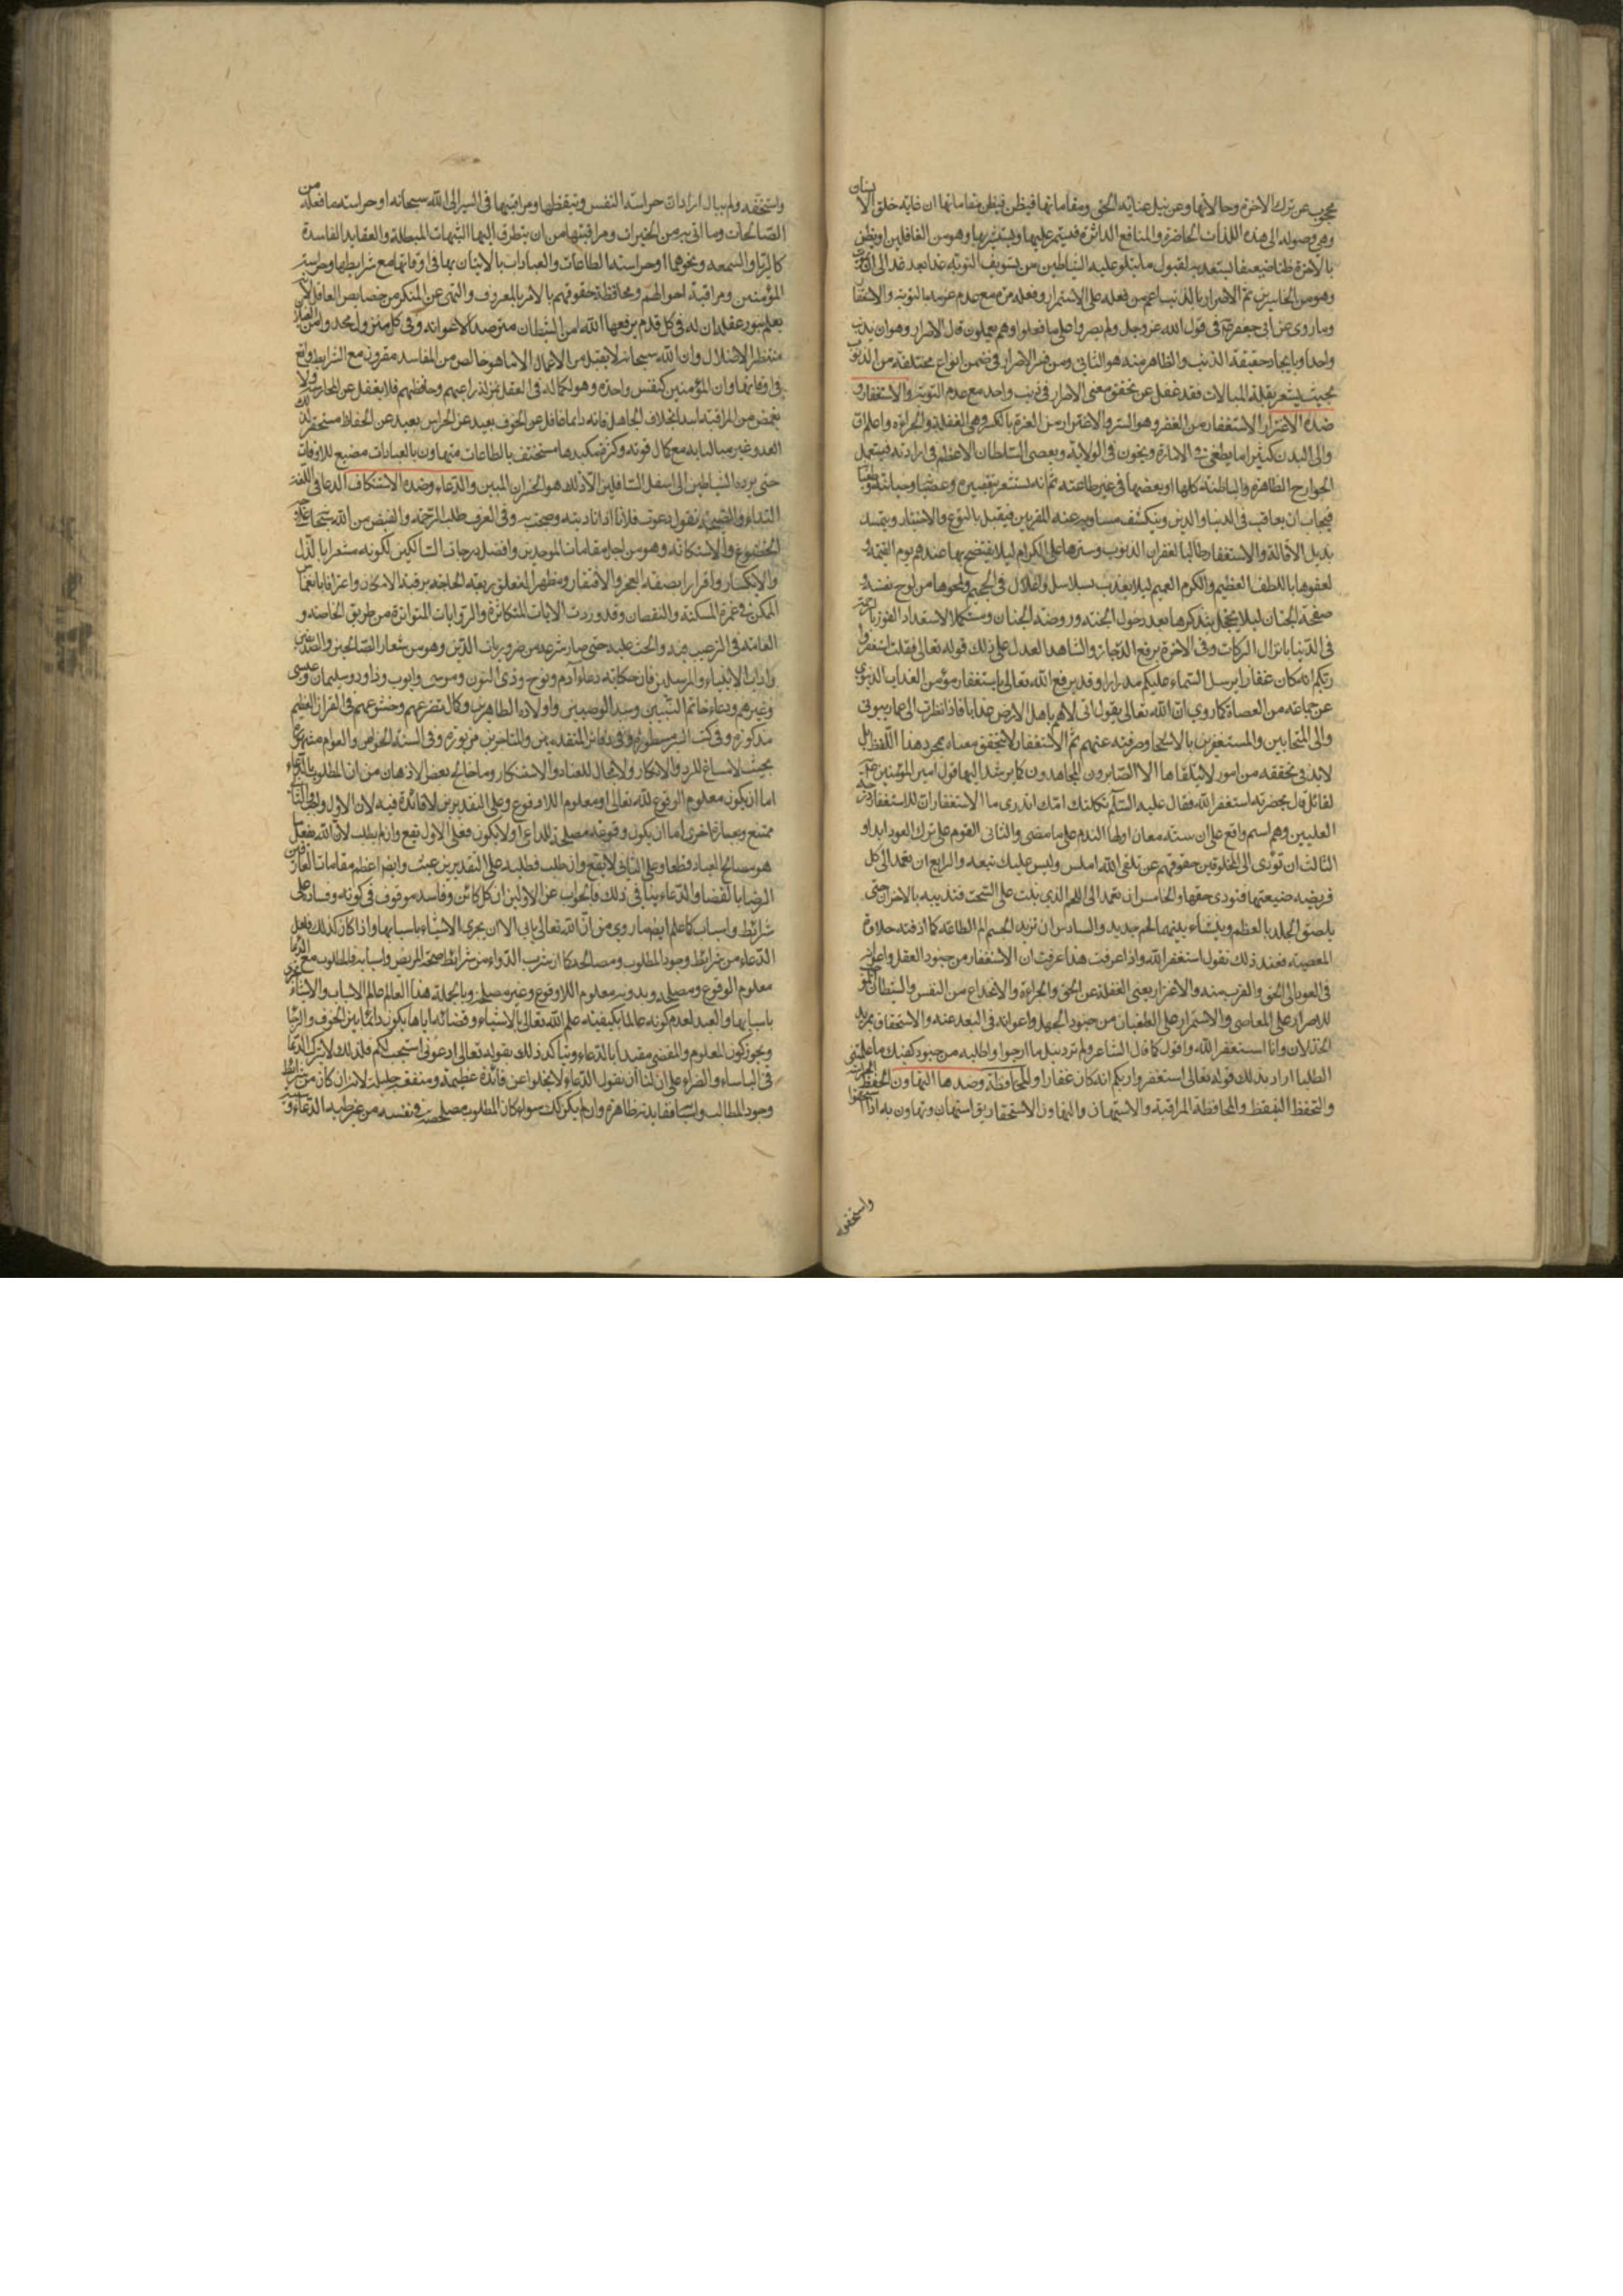 محجوب عن ترك الاخرة وحالاتها وعن نيل عناية الحق ومقاماتها فيظن ان غاية خلق الانسان
وهي وصوله الى هذه اللذات الحاضرة والمنافع الداثرة فيستمر عليها ويستبشر بها وهو من الغافلين او يظن
بالاخرة ظنا ضعيفا يستعد به لقبول ما يتلو عليه الشياطين من تسويف التوبة غدا بعد غد الى ان
وهو من الخاسرين ثم الاصرار بالذنب اعم من فعله على الاستمرار وفعله مرة مع عدم عزمه بالتوبة والاستغفار
وما روي عن ابي جعفر في قول الله عز وجل ولم يصروا على ما فعلوا وهم يعلمون قال الاصرار وهو ان يذنب
حقيقة الذنب والظاهر منه هو الثاني ومن فسر الاصرار في ضمن انواع مختلفة من الذنوب
بحيث يشعر بقلة المبالات فقد غفل عن تحقق معنى الاصرار في ذنب واحد مع عدم التوبة والاستغفار و
ضده الاغترار الاستغفار من الغفر وهو الستر والاغترار من الغرة بالكسر وهي الغفلة والجراءة واعلم ان
والي البدن كثيرا ما يطغى في الامارة ويخون في الولاية ويعصي السلطان الاعظم في ارادته فيستعمل
الجوارح الظاهرة والباطنة كلها او بعضها في غير طاعته ثم انه يستشعر بتقصيره وعصيانه
فيخاف ان يعاقب في الدنيا والدين وينكشف مساويه عند المقربين فيقبل بالتوبة والاستغفار ويتمسك
بذيل الاقالة والاستغفار طالبا لغفران الذنوب وسترها على الكرام ليلا يفتضح بها عندهم يوم القيمة
لعفوها باللطف العظيم والكرم العميم ليلا يعذب بسلاسل واغلال في الجحيم ولمحوها من لوح نفسه و
صفحة الجنان ليلا يخجل بتذكرها بعد دخول الجنة وروضة الجنان ومستكملا الاستعداد الفوز بالرحمة
في الدنيا بانزال البركات وفي الاخرة برفع الدرجات والشاهد العدل على ذلك قوله تعالى فقلت استغفروا
ربكم انه كان غفارا يرسل السماء عليكم مدرارا وقد يرفع الله تعالى باستغفار مؤمن العذاب الدنيوي
عن جماعة من العصاة كما روي ان الله تعالى يقول اني لاهم باهل الارض عذابا فاذا نظرت الى عمار بيوتي
والى المتحابين والمستغفرين بالاسحار صرفته عنهم ثم الاستغفار لا يتحقق معناه بمجرد هذا اللفظ بل
لابد في تحققه من امور لا يتلقاها الا الصابرون المجاهدون كما يرشد اليها قول امير المؤمنين
لقائل قال بحضرته استغفر الله فقال عليه السلام ثكلتك امك اتدري ما الاستغفار ان للاستغفار درجة
العليين وهو اسم واقع على ستة معان اولها الندم على ما مضى والثاني العزم على ترك العود ابدا و
الثالث ان تؤدي الى المخلوقين حقوقهم حتى تلقى الله املس وليس عليك تبعة والرابع ان تعمد الى كل
فريضة ضيعتها فتؤدي حقها والخامس ان تعمد الى اللحم الذي نبت على السحت فتذيبه بالاحزان حتى
يلصق الجلد بالعظم وينشأ بينهما لحم جديد والسادس ان تذيق الجسم الم الطاعة كما اذقته حلاوة
المعصية فعند ذلك تقول استغفر الله واذا عرفت هذا عرفت ان الاستغفار من جنود العقل واعوانه
في العود الى الحق والقرب منه والاغترار يعني الغفلة عن الحق والجراءة والانخداع من النفس والشيطان
للاصرار على المعاصي والاستمرار على الطغيان من جنود الجهل واعوانه في البعد عنه والاستحقاق بمزيد
الخذلان وانا استغفر الله واقول كما قال الشاعر لو لم ترد نيل ما ارجوا واطلبه من جود كفيك ما علمتني
الطلبا اراد بذلك قوله تعالى استغفروا ربكم انه كان غفارا والمحافظة وضدها التهاون الحفظ
والتحفظ التيقظ والمحافظة المراقبة والاستهانة والتهاون الاستحقار يق استهان وتهاون به اذا
واستخفوه
واستحقره ولم يبال اراد حراسة النفس وتيقظها ومراقبتها في السير الى الله سبحانه او حراسة ما فعله من
الصالحات وما اتى به من الخيرات ومراقبتها من ان يتطرق اليها الشبهات المبطلة والعقايد الفاسدة
كالريا والسمعة ونحوهما او حراسة الطاعات والعبادات بالاتيان بها في اوقاتها مع شرايطها وحراسة
المؤمنين ومراقبة احوالهم ومحافظة حقوقهم بالامر بالمعروف والنهي عن المنكر من خصايص العاقل لانه
يعلم بنور عقله ان له في كل قدم يرفعها الله من الشيطان مترصدا لاغوائه وفي كل منزل
منتظرا لاضلال وان الله سبحانه لا يقبل من الاعمال الا ما هو خالص من المفاسد مقرون مع الشرايط واقع
في اوقاتها وان المؤمنين كنفس واحدة وهو لكماله في العقل بمنزلة راعيهم وحافظهم فلا يغفل عن الحراسة ولا
يغمض من المراقبة ابدا بخلاف الجاهل فانه دائما غافل عن الخوف بعيد عن الحراس بعيد عن الحفاظ مستحقر لذلك
العدو غير مبال به مع كمال قوته وكثرة مكيدها مستخف بالطاعات متهاون بالعبادات مضيع للاوقات
حتى يرده الشياطين الى اسفل السافلين الا ذلك هو الخسران المبين والدعاء وضده الاستنكاف الدعا في اللغة
النداء والصيحة تقول دعوت فلانا اذا ناديته وصحت به وفي العرف طلب الرحمة والفيض من الله سبحانه على
الخضوع والاستكانة وهو من اجل مقامات الموحدين وافضل درجات السالكين لكونه مشعرا بالذل
والانكسار واقرارا بصفة العجز والافتقار ومظهرا لتعلق ربقة الحاجة برقبة الامكان واعترافا بانغماس
الممكن في غمرة المسكنة والنقصان وقد وردت الايات المتكاثرة والروايات المتواترة من طريق الخاصة و
العامة في الترغيب فيه والحث عليه حتى صار شرعه من ضروريات الدين وهو من شعار الصالحين والصديقين
واداب الانبياء والمرسلين فان حكاية دعاء آدم ونوح وذي النون وموسى وايوب وداود وسليمان وعيسى
وغيرهم ودعاء خاتم النبيين وسيد الوصيين واولاده الطاهرين وكمال تضرعهم وخشوعهم في القران العظيم
مذكورة وفي كتب السير مسطورة وفي دفاتر المتقدمين والمتاخرين مزبورة وفي السنة الخواص والعوام مشهورة
بحيث لا مساغ للرد والانكار ولا مجال للعناد والاستنكار وما خالج بعض الاذهان من ان المطلوب بالدعاء
اما ان يكون معلوم الوقوع لله تعالى او معلوم اللا وقوع وعلى التقديرين لا فائدة فيه لان الاول واجب والثاني
ممتنع وبعبارة اخرى اما ان يكون وقوعه مصلحة للداعي او لا يكون فعلى الاول يقع وان لم يطلب لان الله يفعل
هو مصالح العباد قطعا وعلى الثاني لا يقع وان طلب فطلبه على التقديرين عبث وايضا اعظم مقامات العارفين
الرضا بالقضا والدعاء ينافي ذلك فالجواب عن الاولين ان كل كائن وفاسد موقوف في كونه وفساده على
شرائط واسباب كما علم ايضا مما روي من ان الله تعالى يابى الا ان يجري الاشياء باسبابها واذا كان كذلك فلعل
الدعاء من شرائط وجود المطلوب ومصالحه كما ان شرب الدواء من شرائط صحة المريض واسبابه فالمطلوب مع الدعا
معلوم الوقوع ومصلحة وبدونه معلوم اللا وقوع وغير مصلحة وبالجملة هذا العالم عالم الاسباب والاشياء تجري
باسبابها والعبد لعدم كونه عالما بكيفية علم الله تعالى بالاشياء وقضائه اياها يكون دائما بين الخوف والرجا
ويجوز كون المعلوم والمقضي مقيدا بالدعاء ويتأكد ذلك بقوله تعالى ادعوني استجب لكم فلذلك لا يترك الدعا
في الباساء والضراء على ان لنا ان نقول الدعاء لا يخلوا عن فائدة عظيمة ومنفعة جليلة لانه ان كان من شرائط
وجود المطالب واسبابها فائدته ظاهرة وان لم يكن كك سواء كان المطلوب مصلحة في نفسه من غير طلبه